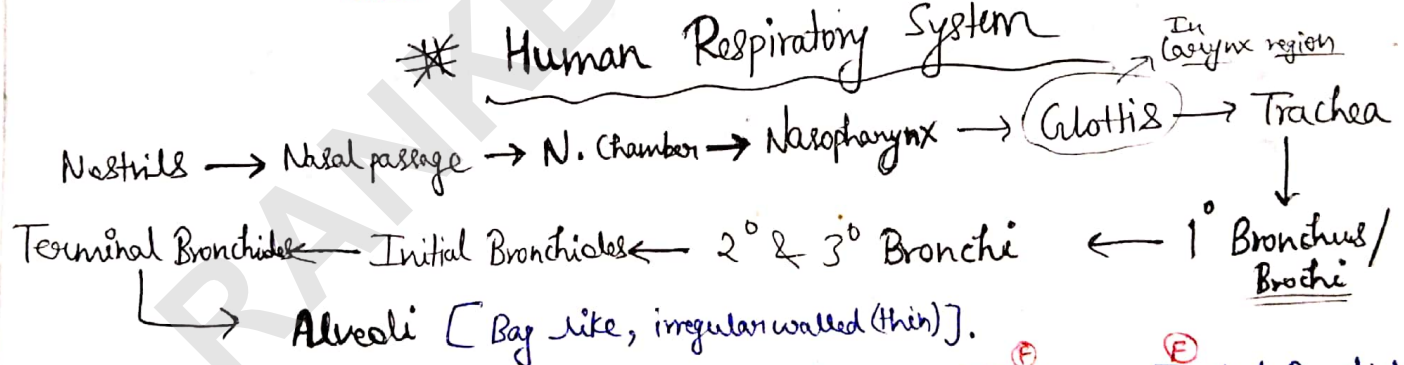 * Human Respiratory System
In
Larynx region
Nostrils → Nasal passage → N. Chamber → Nasopharynx → Glottis → Trachea
↓
Terminal Bronchioles ← Initial Bronchioles ← 2° & 3° Bronchi ← 1° Bronchus/
Brochi
→ Alveoli [Bag like, irregular walled (thin)].
F E
RANKE